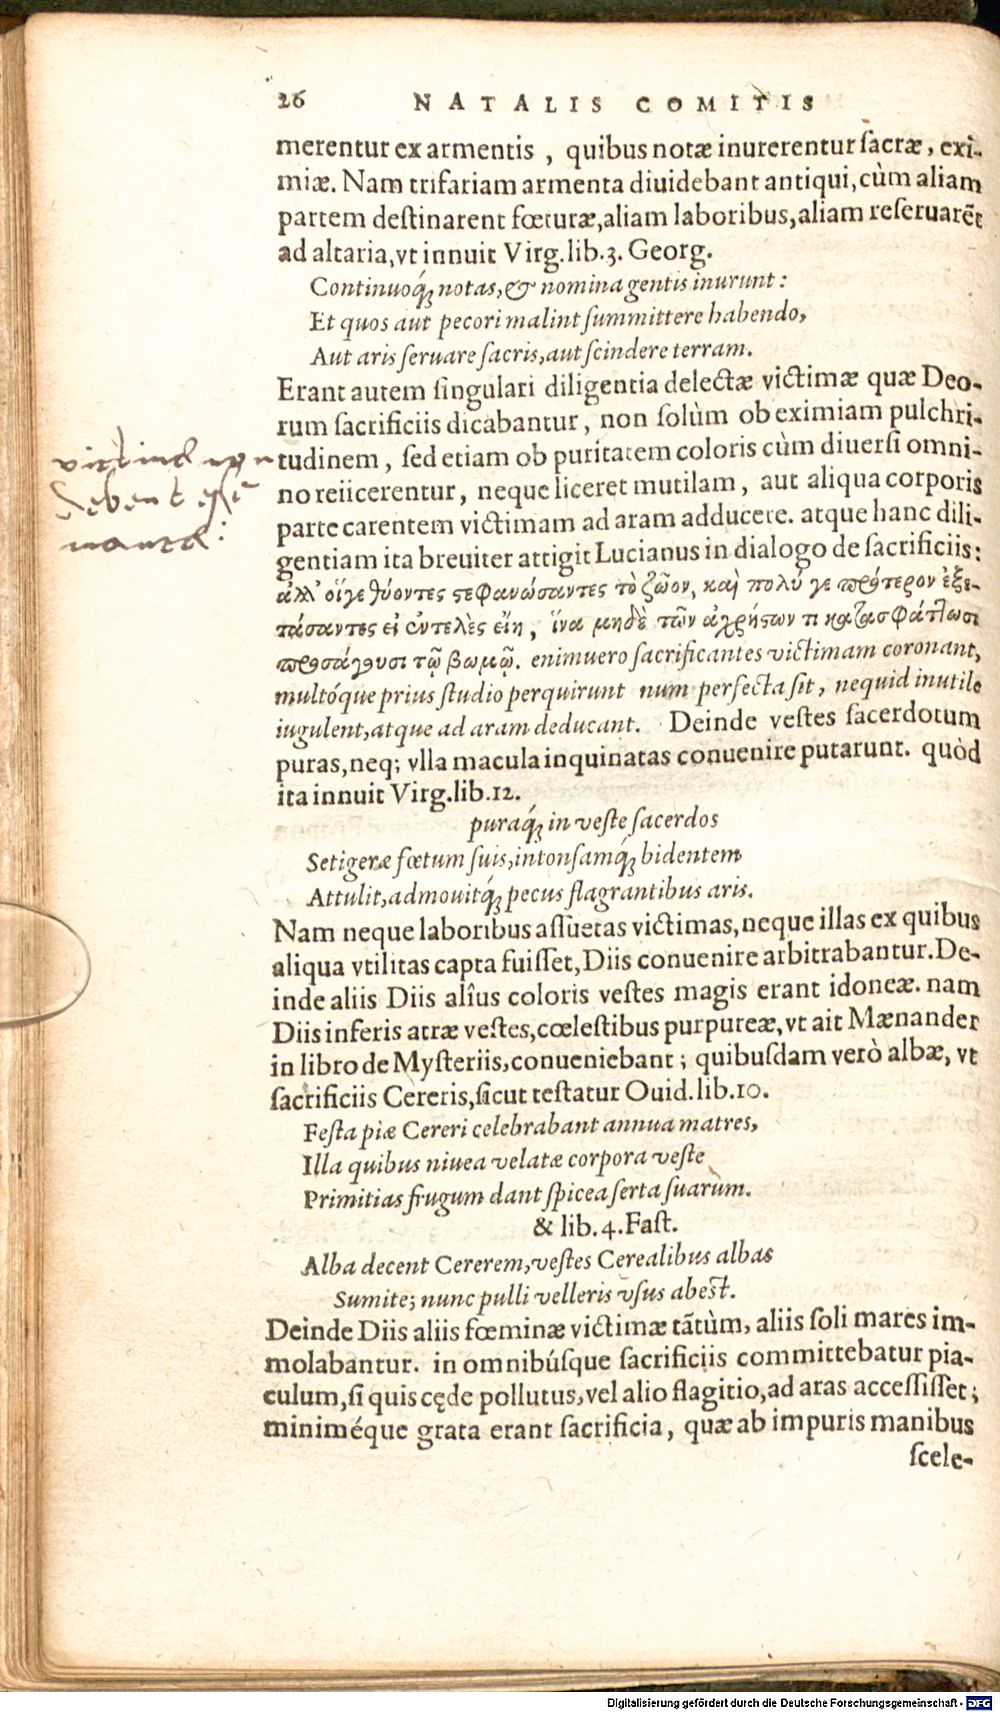 26 NATALIS COMITIS
merentur ex armentis, quibus notæ inurerentur sacræ, exi-
miæ. Nam trifariam armenta diuidebant antiqui, cùm aliam
partem destinarent fœturæ, aliam laboribus, aliam reseruarēt
ad altaria, vt innuit Virg. lib. 3. Georg.
Continuoq́; notas, & nomina gentis inurunt:
Et quos aut pecori malint summittere habendo,
Aut aris seruare sacris, aut scindere terram.
Erant autem singulari diligentia delectæ victimæ quæ Deo-
rum sacrificiis dicabantur, non solùm ob eximiam pulchri-
tudinem, sed etiam ob puritatem coloris cùm diuersi omni-
no reiicerentur, neque liceret mutilam, aut aliqua corporis
parte carentem victimam ad aram adducere. atque hanc dili-
gentiam ita breuiter attigit Lucianus in dialogo de sacrificiis:
ἀλλ' οἵγε θύοντες στεφανώσαντες τὸ ζῶον, καὶ πολύ γε πρότερον ἐξε-
τάσαντες εἰ ἐντελὲς εἴη, ἵνα μηδὲ τῶν ἀχρήστων τι κατασφάττωσι
προσάγουσι τῷ βωμῷ. enimuero sacrificantes victimam coronant,
multóque prius studio perquirunt num perfecta sit, nequid inutile
iugulent, atque ad aram deducant. Deinde vestes sacerdotum
puras, neq; vlla macula inquinatas conuenire putarunt. quòd
ita innuit Virg. lib. 12.
puraq́; in veste sacerdos
Setigeræ fœtum suis, intonsamq́; bidentem
Attulit, admouitq́; pecus flagrantibus aris.
Nam neque laboribus assuetas victimas, neque illas ex quibus
aliqua vtilitas capta fuisset, Diis conuenire arbitrabantur. De-
inde aliis Diis alîus coloris vestes magis erant idoneæ. nam
Diis inferis atræ vestes, cœlestibus purpureæ, vt ait Mænander
in libro de Mysteriis, conueniebant; quibusdam verò albæ, vt
sacrificiis Cereris, sicut testatur Ouid. lib. 10.
Festa piæ Cereri celebrabant annua matres,
Illa quibus niuea velatæ corpora veste
Primitias frugum dant spicea serta suarùm.
& lib. 4. Fast.
Alba decent Cererem, vestes Cerealibus albas
Sumite; nunc pulli velleris vsus abest.
Deinde Diis aliis fœminæ victimæ tātùm, aliis soli mares im-
molabantur. in omnibúsque sacrificiis committebatur pia-
culum, si quis cęde pollutus, vel alio flagitio, ad aras accessisset;
miniméque grata erant sacrificia, quæ ab impuris manibus
scele-
victimæ non
debent esse
mancæ:
Digitalisierung gefördert durch die Deutsche Forschungsgemeinschaft - DFG